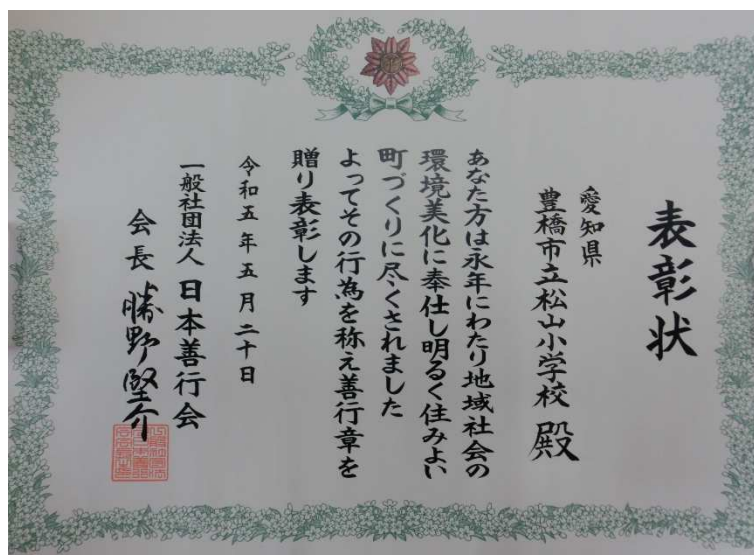 表彰状
愛知県
豊橋市立松山小学校 殿
あなた方は永年にわたり地域社会の
環境美化に奉仕し明るく住みよい
町づくりに尽くされました
よってその行為を称え善行章を
贈り表彰します
令和五年五月二十日
一般社団法人 日本善行会
会長 勝野堅介